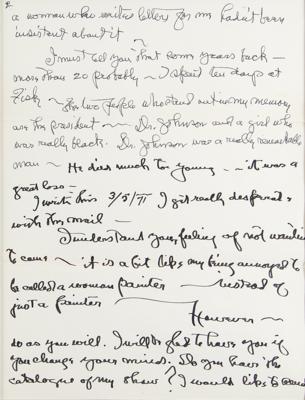 2
a woman who writes letters for me hadn't been
insistant about it —
I must tell you that some years back —
more than 20 probably ~ I spent ten days at
Fisk ~ The two people who stand out in my memory
are the president ~ Dr. Johnson and a girl who
was really black. Dr. Johnson was a really remarkable
man ~ He died much too young — it was a
great loss —
I write this 3/5/71 I get really desperate
with the mail —
I understand your feeling of not wanting
to come ~ it is a bit like my being annoyed to
be called a woman painter — instead of
just a painter
However ~
do as you will. I will be glad to have you if
you change your mind. Do you have the
catalogue of my show? I would like to send